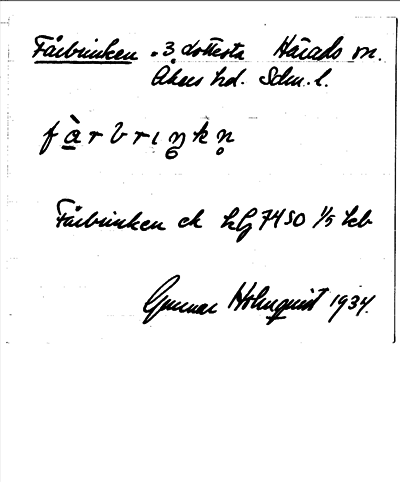 Fårbrinken . 3 dottorta Härads sn.
Åkers hd. Sdm. l.
fàrbrıŋkn̥
Fårbrinken ek hG 7450 1/5 hcb
Gunnar Holmquist 1934.